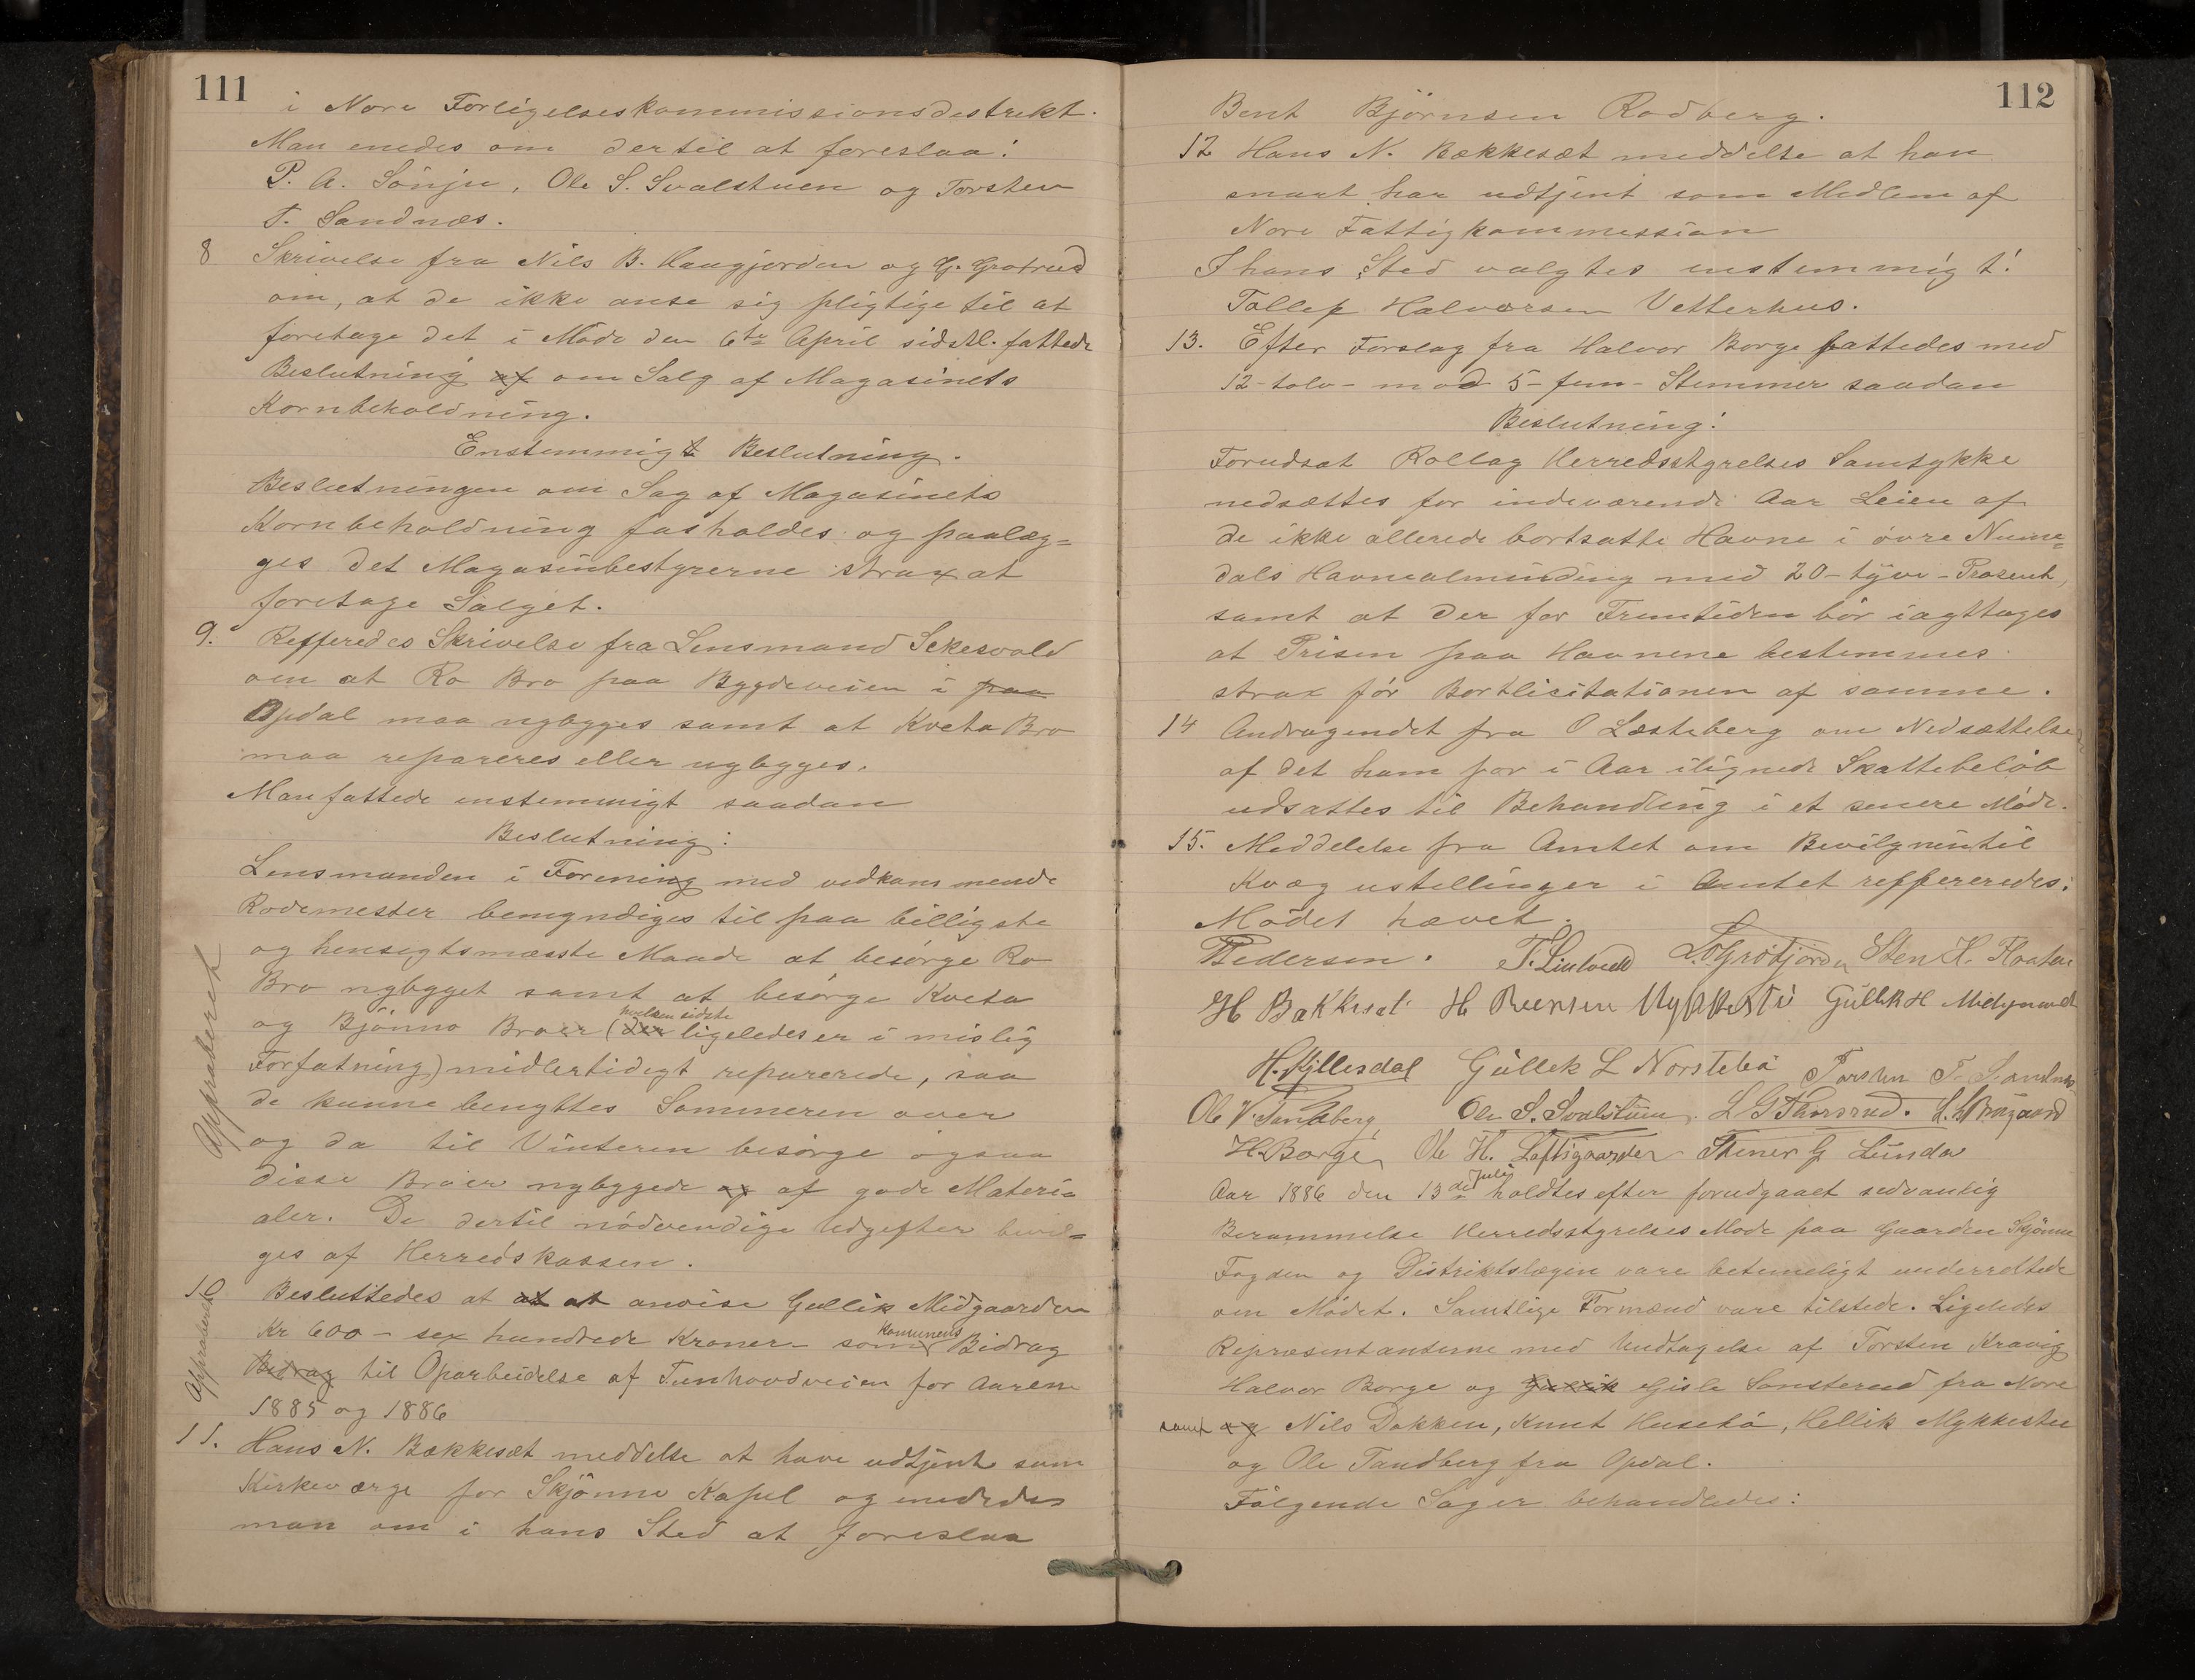 111
i Nore Forligelseskommissionsdestrekt.
Man enedes om dertil at foreslaa:
P. A. Sönju, Ole S. Svalstuen og Torsten
T. Sandnæs.
8 Skrivelse fra Nils B. Haugjorden og G. Grotrud
om, at de ikke anse sig pligtige til at
foretage det i Möde den 6te April sidstl. fattede
Beslutning af om Salg af Magasinets
Kornbeholdning.
Enstemmigt Beslutning.
Beslutningen om Sag af Magasinets
Kornbeholdning fasholdes og paalæg=
ges det Magasinbestyrerne strax at
foretage Salget.
9. Refferedes Skrivelse fra Lensmand Sekesvold
om at Ro Bro paa Bygdeveien i paa
Opdal maa nybygges samt at Kveta Bro
maa repareres eller nybygges.
Man fattede enstemmigt saadan
Beslutning:
Lensmanden i Forening med vedkommende
Rodemester bemyndiges til paa billigste
og hensigtsmæsste Maade at besörge Ro
Bro nybygget samt at besörge Kveta
og Bjönno Broer (der hvilken sidste ligeledes er i mislig
Forfatning) midlertidigt reparerede, saa
de kunne benyttes Sommeren over
og da til Vinteren besörge ogsaa
disse Broer nybyggede og af gode Materi=
aler. De dertil nödvendige Udgifter bevil=
ges af Herredskassen.
Approberet
10 Besluttedes at at at anvise Gullik Midgaarden
Kr 600 - sex hundrede Kroner - som Komunens Bidrag
Bidrag til Oparbeidelse af Tunhovdveien for Aarene
1885 og 1886
Approberet
11. Hans N. Bækkesæt meddelte at have udtjent som
Kirkeværge for Skjönne Kapel og enededes
man om i hans Sted at foreslaa
112
Bent Björnsen Rodberg.
12 Hans N. Bækkesæt meddelte at han
snart har udtjent som Medlem af
Nore Fattigkommession
I hans Sted valgtes enstemmigt:
Tollef Halvorsen Vetterhus.
13. Efter Forslag fra Halvor Borge fattedes med
12 - tolv - mod 5 - fem - Stemmer saadan
Beslutning:
Forudsat Rollag Herredsstyrelses Samtykke
nedsættes for indeværende Aar Leien af
de ikke allerede bortsatte Havne i övre Nume=
dals Havnealminding med 20 - tyve - Prosent,
samt at der for Fremtiden bör iagttages
at Prisen paa Havnene bestemmes
strax för Bortlisitationen af samme.
14 Andragendet fra O Læsteberg om Nedsættelse
af det ham for i Aar ilignede Skattebelöb
udsattes til Behandling i et senere Möde.
15. Meddelelse fra Amtet om Bevilgnintil
Kvæg ustellinger i Amtet reffereredes.
Mödet hævet.
Pedersen. T. Lislrud Sten K.
H Bakkesæt H Gullik H Midgaard
H. Kjillesdal Gullek L Norstebö Torsten T. Sandnæs
Ole V. Tandberg, Ole S. Svalstuen. L G Thorsrud.
H. Borge, Ole H. Loftsgaarden Stener G Lunda
Aar 1886 den 13de Juli holdtes efter forudgaaet sedvanlig
Berammelse Herredsstyrelses Mode paa Gaarden Skjönne
Fogden og Distriktslægen vare betimeligt underrettede
om Mödet. Samtlige Formænd vare tilstede. Ligeledes
Repræsentanterne med Undtagelse af Torsten Kravig
Halvor Borge og Gullik Gisle Sonsterud fra Nore
samt og Nils Dokken, Knut Husebö, Hellik Mykkestu
og Ole Tandberg fra Opdal.
Fölgende Sager behandledes: